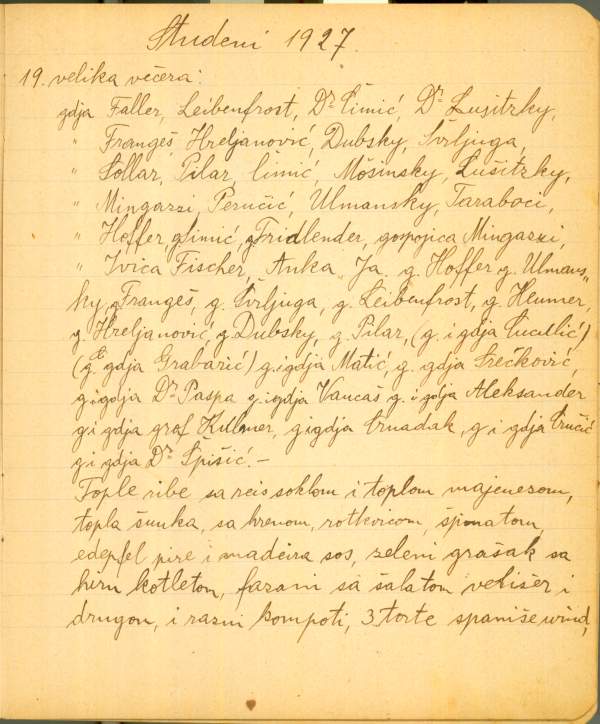 Studeni 1927.
19. velika večera:
gdja Faller, Leibenfrost, Dr Čimić, Dr Lušitzky,
" Frangeš Hreljanović, Dubsky, Švrljuga,
" Šollar, Pilar, Čimić, Möšinsky, Lušitzky,
" Mingazzi, Peručić, Ulmansky, Taraboci,
" Hoffer, g Čimić, g Fridlender, gospojica Mingazzi,
" Ivica Fischer, Anka, Ja. g. Hoffer g. Ulmans„
ky, g Frangeš, g. Švrljuga, g. Leibenfrost, g. Heumer,
g. Hreljanović, g Dubsky, g. Pilar, (g. i gdja
(g. gdja Grabarić) g. i gdja Matić, g. gdja Srećković,
g. i gdja Dr Paspa g. i gdja Vancaš g. i gdja Aleksander
g i gdja graf Kulmer, g i gdja Crnadak, g i gdja
g i gdja Dr Špišić. –
Tople ribe sa reis soklom i toplom majenezom,
topla šunka, sa hrenom, rotkvicom, špinatom,
edepfel pire i madeira sos, zeleni grašak sa
hirn kotletom, fazani sa šalatom vehišer i
drugom, i razni kompoti, 3 torte spaniše wind,